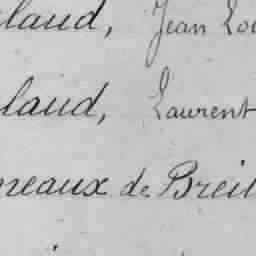 laud, Jean Lou
laud, Laurent
neaux de Breil